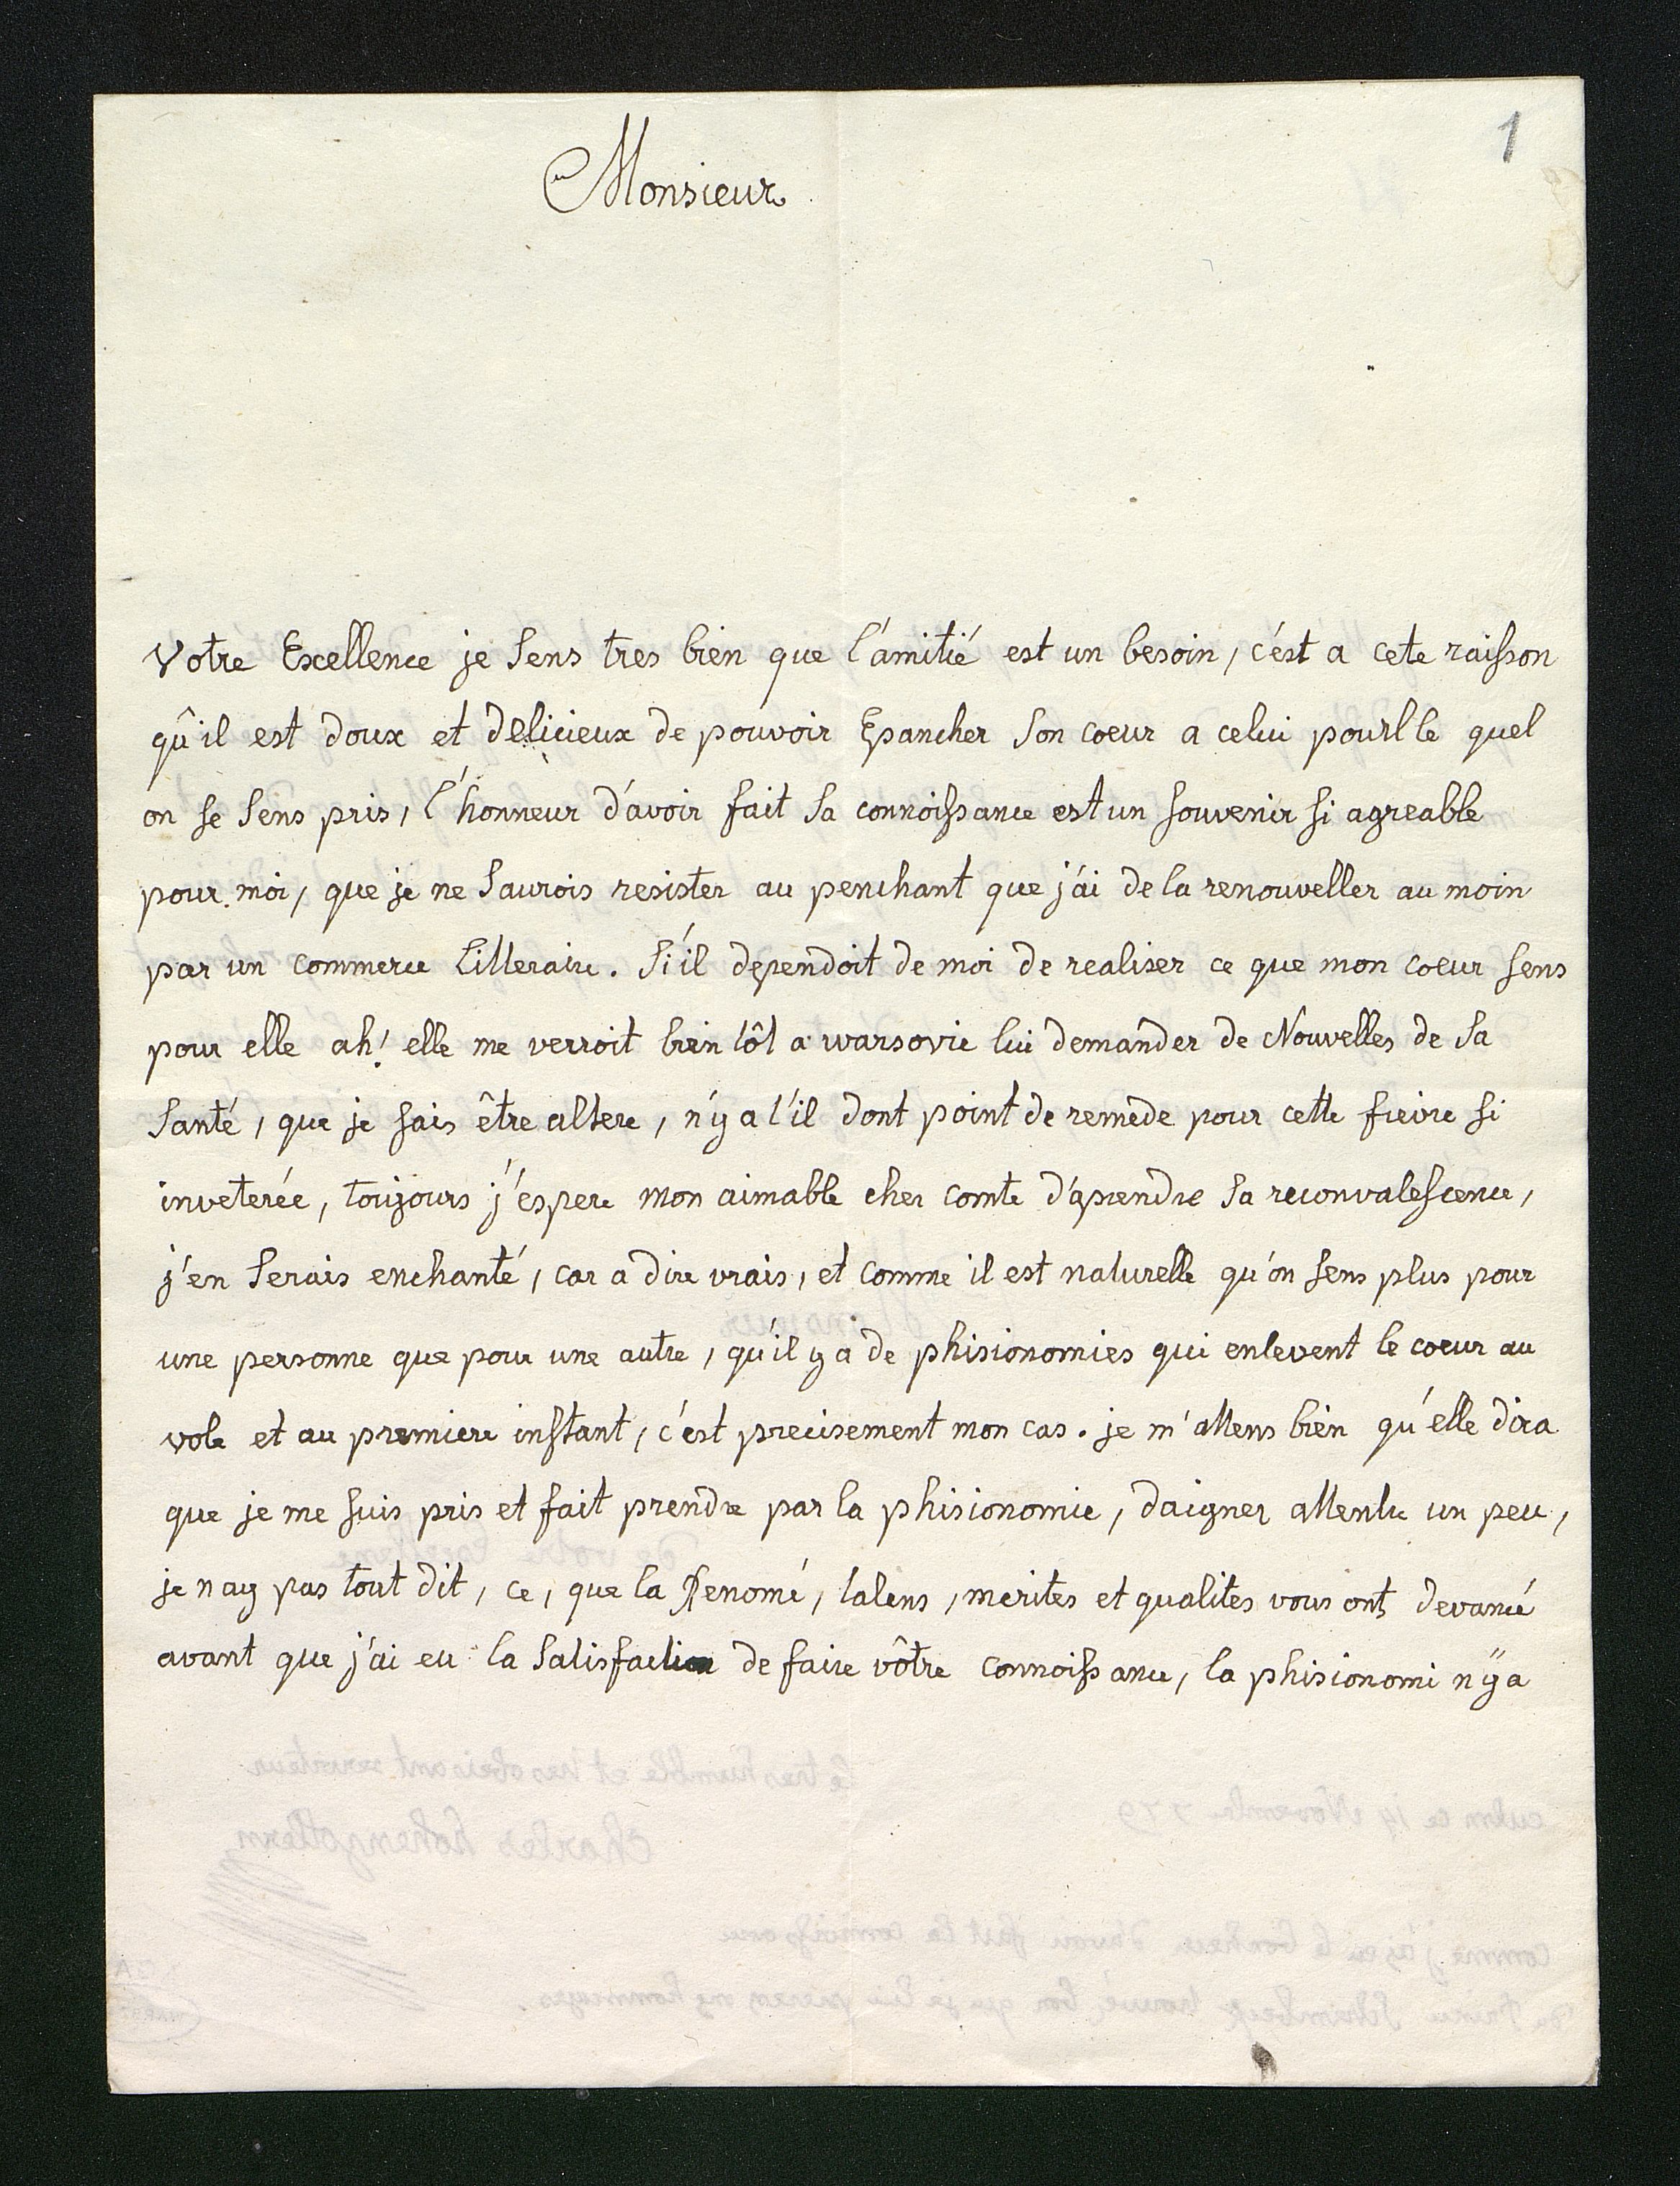 1
Monsieur
Votre Excellence je sens tres bien que l'amitié est un besoin, c'est a cete raisson
qu'il est doux et delicieux de pouvoir Epancher son coeur a celui pour le quel
on se sens pris, l'honneur d'avoir fait sa connoissance est un souvenir si agreable
pour moi, que je ne saurois resister au penchant que j'ai de la renouveller au moin
par un commerce litteraire. s'il dependoit de moi de realiser ce que mon coeur sens
pour elle ah! elle me verroit bien tôt a warsovie lui demander de Nouvelles de sa
santé, que je sais être altere, n'y a t'il dont point de remede pour cette fievre si
inveterée, toujours j'espere mon aimable cher comte d'aprendre sa reconvalescence,
j'en serais enchanté, car a dire vrais, et comme il est naturelle qu'on sens plus pour
une personne que pour une autre, qu'il y a de phisionomies qui enlevent le coeur au
vole et au premiere instant, c'est precisement mon cas. je m'attens bien qu'elle dira
que je me suis pris et fait prendre par la phisionomie, daignez attentre un peu,
je n'ay pas tout dit, ce, que la Renomé, talens, merites et qualites vous ont devancé
avant que j'ai eu la satisfaction de faire vôtre connoissance, la phisionomi n'y a